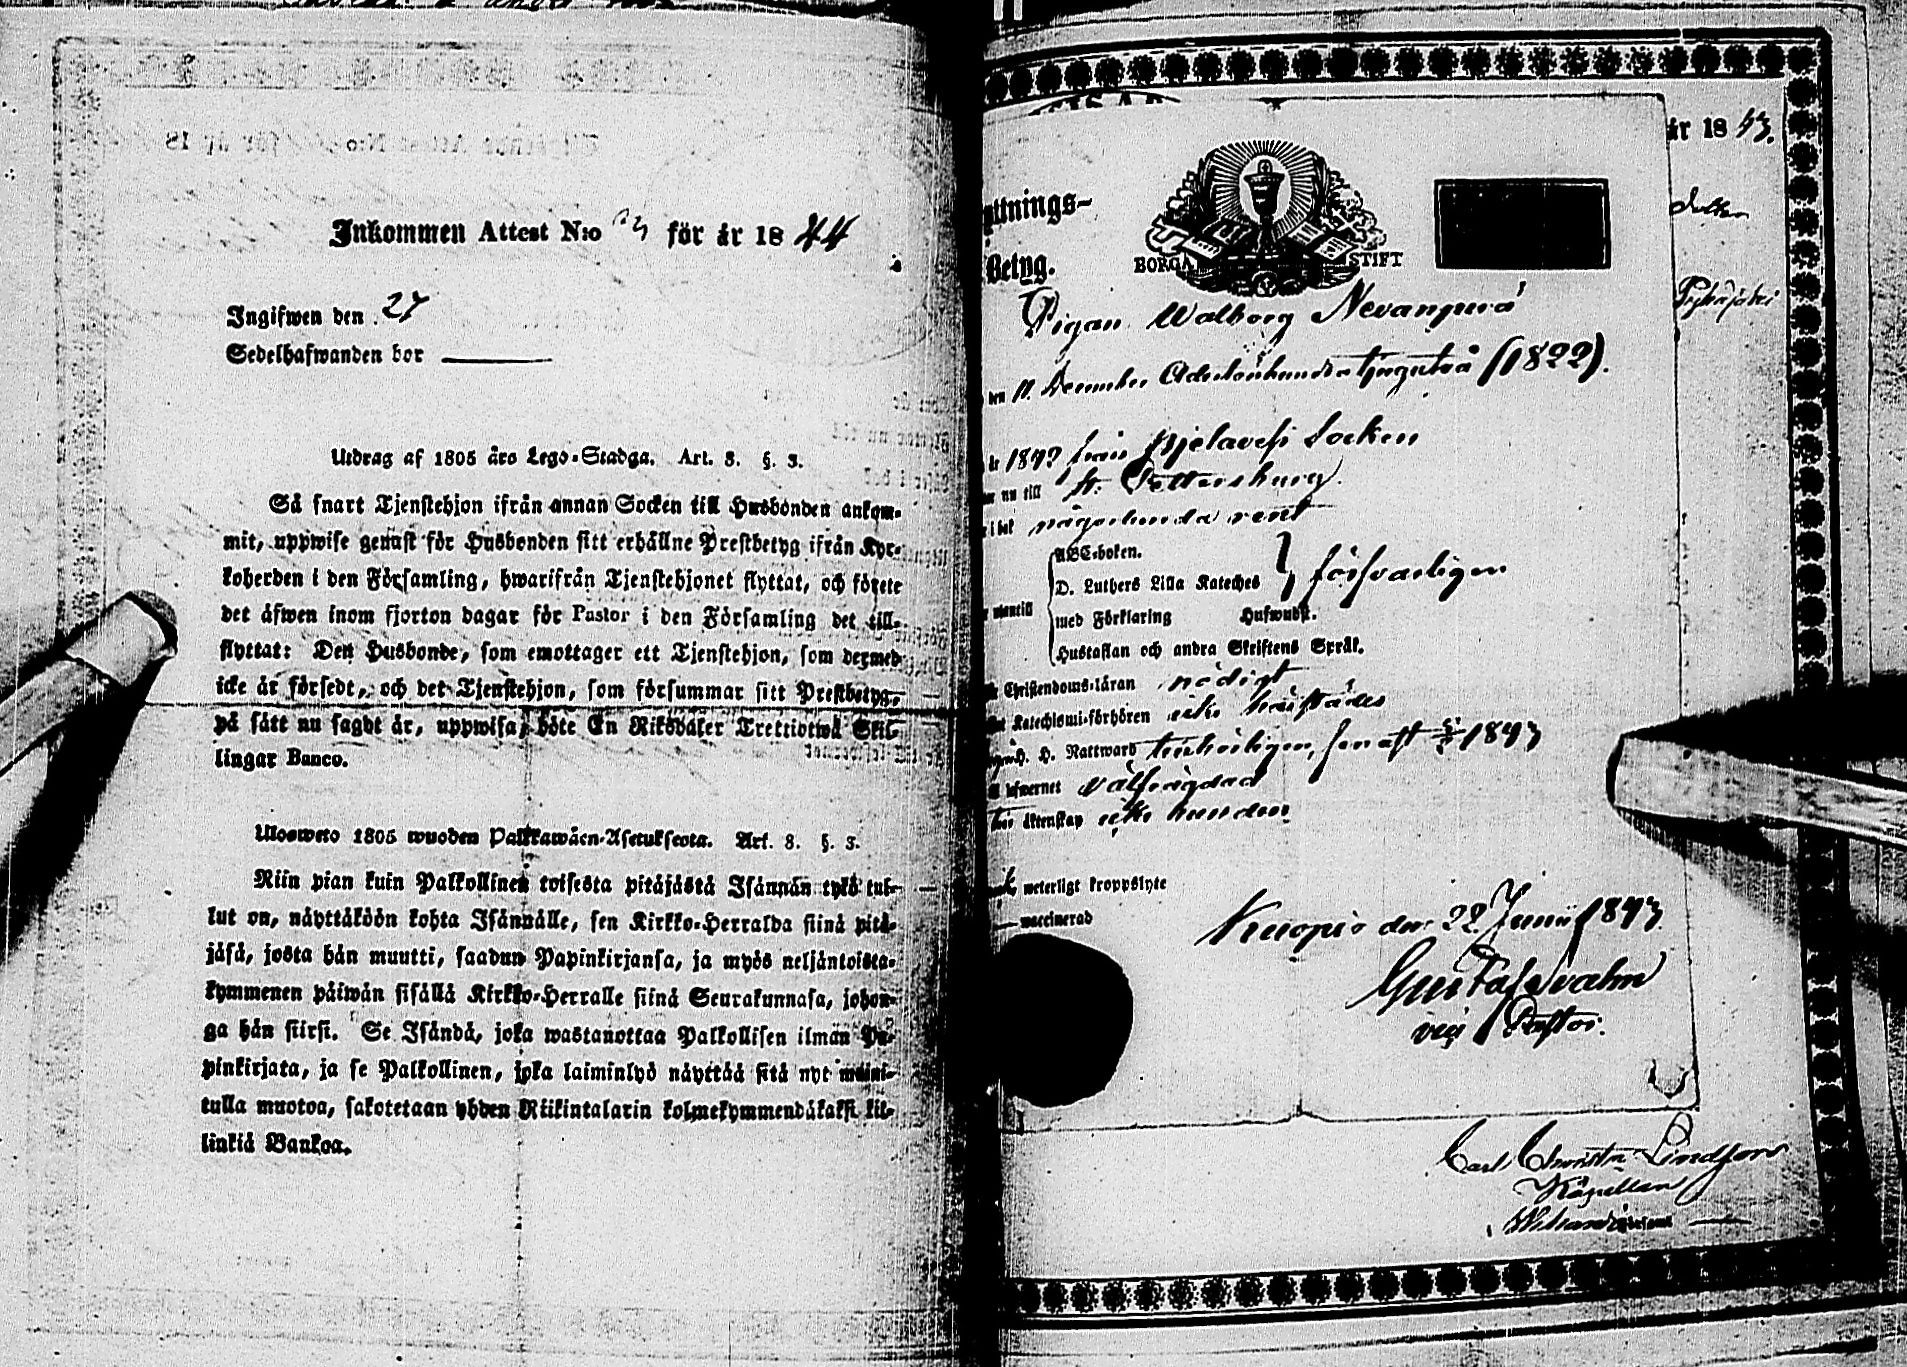 Inkommen Attest N:o för år 1844
Ingifwen den 27
Sedelhafwanden bor
Utdrag af 1805 års Lego-Stadga. Art. 8. §. 3.
Så snart Tjenstehjon ifrån annan Socken till Husbonden ankom-
mit, uppwise genast för Husbonden sitt erhållne Prestbetyg ifrån Kyr-
koherden i den Församling, hwarifrån Tjenstehjonet flyttat, och förete
det äfwen inom fjorton dagar för Pastor i den Församling det till-
flyttat: Den Husbonde, som emottager ett Tjenstehjon, som dermed
icke är försedt, och det Tjenstehjon, som försummar sitt Prestbetyg,
på sätt nu sagdt är, uppwisa, böte En Riksdaler Trettiotwå Skil-
lingar Banco.
Ulosweto 1805 wuoden Palkkawäen-Asetuksesta. Art. 8. §. 3.
Niin pian kuin Palkollinen toisesta pitäjästä Isännän tykö tul-
lut on, näyttäköön kohta Isännälle, sen Kirkko-Herralda siinä pitä-
jäsä, josta hän muutti, saadun Papinkirjansa, ja myös neljäntoista-
kymmenen päiwän sisällä Kirkko-Herralle siinä Seurakunnasa, johon-
ga hän siirsi. Se Isändä, joka wastanottaa Palkollisen ilman Pa-
pinkirjata, ja se Palkollinen, joka laiminlyö näyttää sitä nyt maini-
tulla muotoa, sakotetaan yhden Riikintalarin kolmekymmendäkaksi kil-
linkiä Bankoa.
år 1843.
ttnings-
Betyg.
BORGÅ STIFT
Pigan Walborg
den 11 December Adertonhundra tjugutvå (1822).
år 1842 från Pjelavesi Socken
nu till St. Pettersburg.
i det någorlunda rent
ABC-boken.
D. Luthers Lilla Kateches } försvarligen
utantill
med Förklaring Hufwudst.
Hustaflan och andra Skriftens Språk.
Christendoms-läran nödigt
Katechismi-förhören
H. H. Nattward senast 1843
lefwernet välfrägdad
äktenskap
weterligt kroppslyte
vaccinerad
Kuopio den 22 Junii 1843.
Gustaf Svahn
vice Pastor.
Carl Lindfors
Kapellan